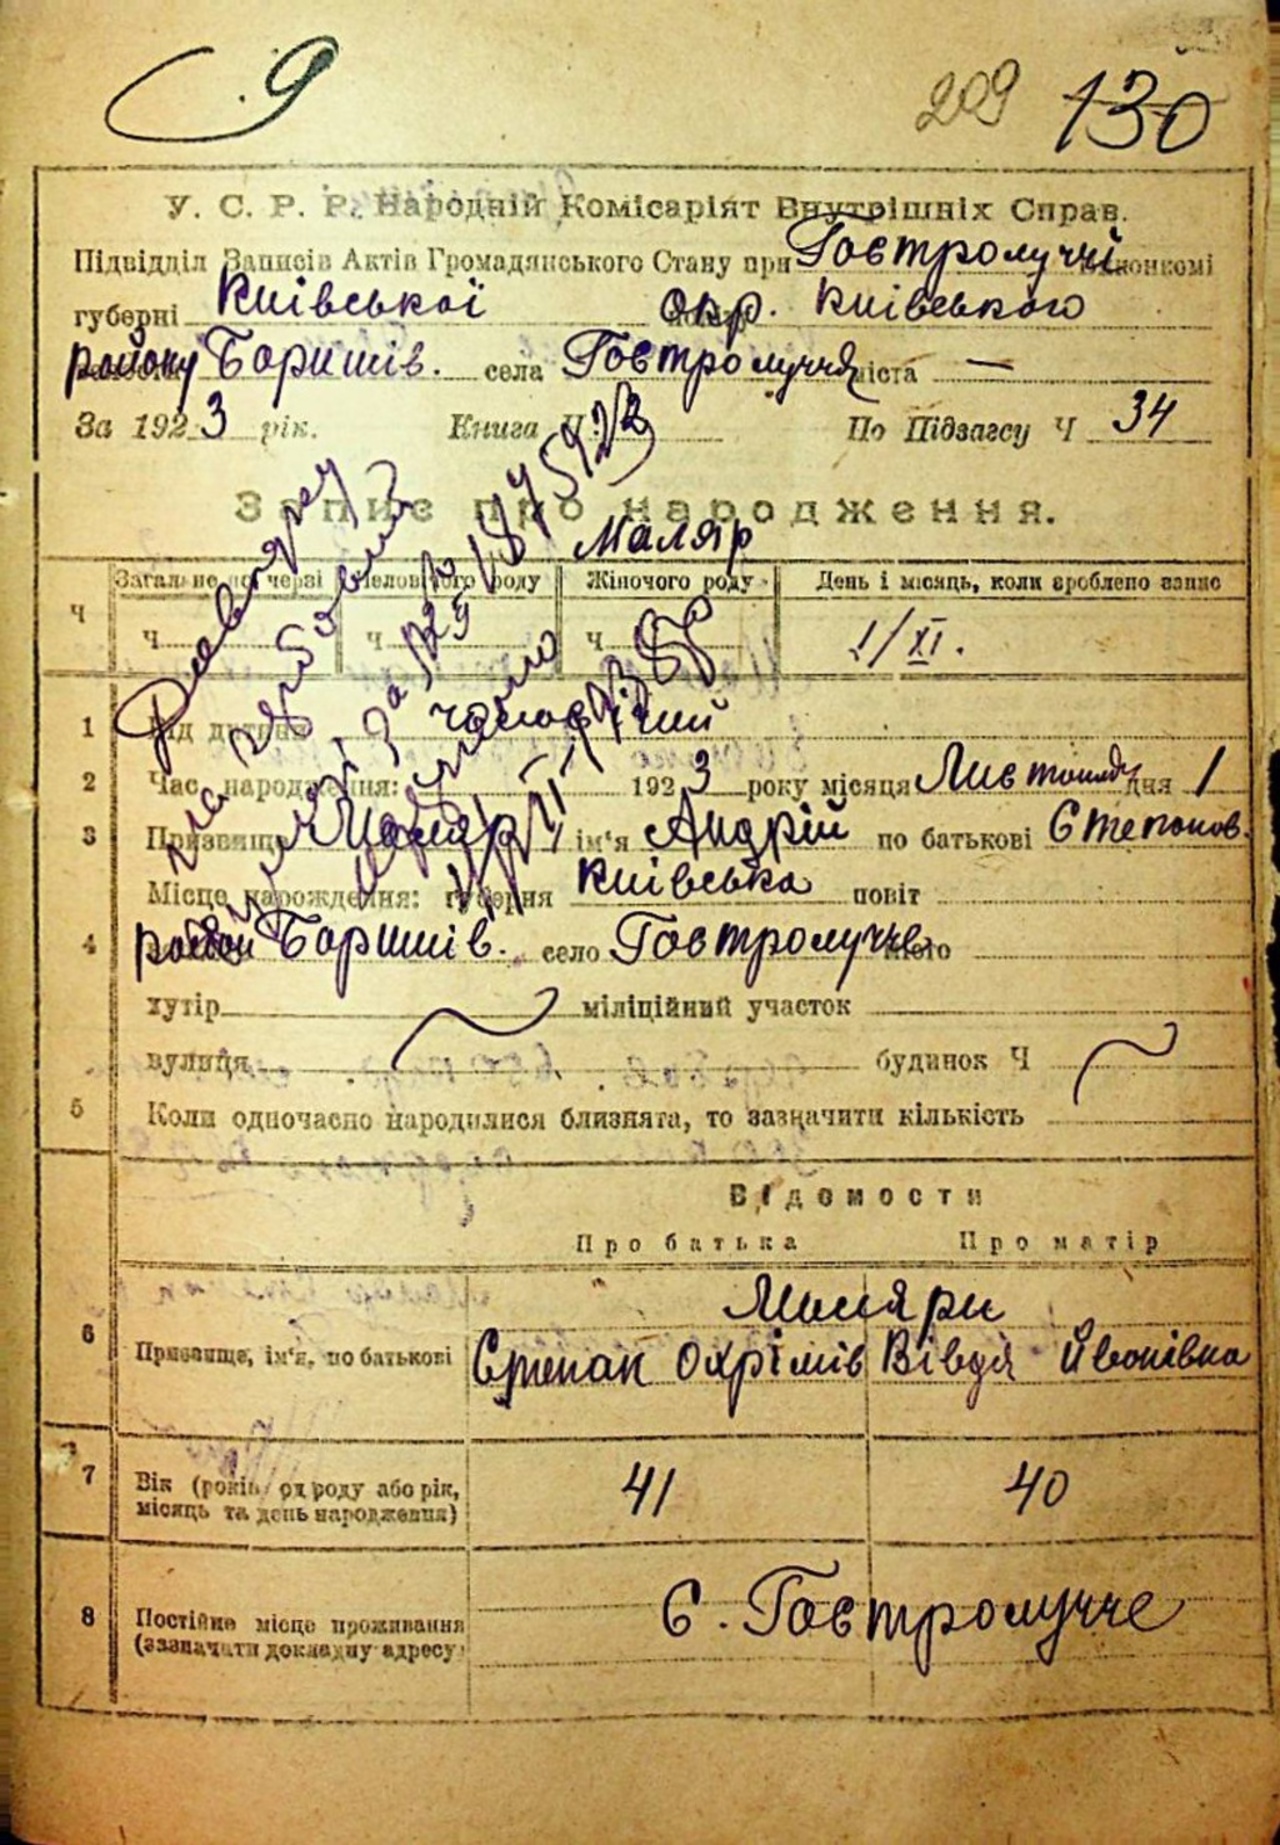 9 209 130
У. С. Р. Р. Народній Комісаріят Внутрішніх Справ.
Підвідділ Записів Актів Громадянського Стану при Гостролуччі виконкомі
губерні Київської окр. Київського
району Баришів. села Гостролуччя міста —
За 1923 рік. Книга Ч. По Підзагсу Ч 34
Запис про народження.
Маляр
Ч Загальне по черзі Чоловічого роду Жіночого роду День і місяць, коли зроблено запис
Ч Ч Ч 1/XI.
1 Від дитини чоловічий
2 Час народження: 1923 року місяця Листопада дня 1
3 Призвище Маляр ім'я Андрій по батькові Степанов.
Місце нарождення: губерня Київська повіт
4 район Баришів. село Гостролучче місто
хутір міліційний участок
вулиця будинок Ч
5 Коли одночасно народилися близнята, то зазначити кількість
Відомости
Про батька Про матір
Маляри
6 Призвище, ім'я, по батькові Степан Охрімів Вівдя Йванівна
7 Вік (років од роду або рік, 41 40
місяць та день народження)
8 Постійне місце проживання С. Гостролучче
(зазначати докладну адресу)